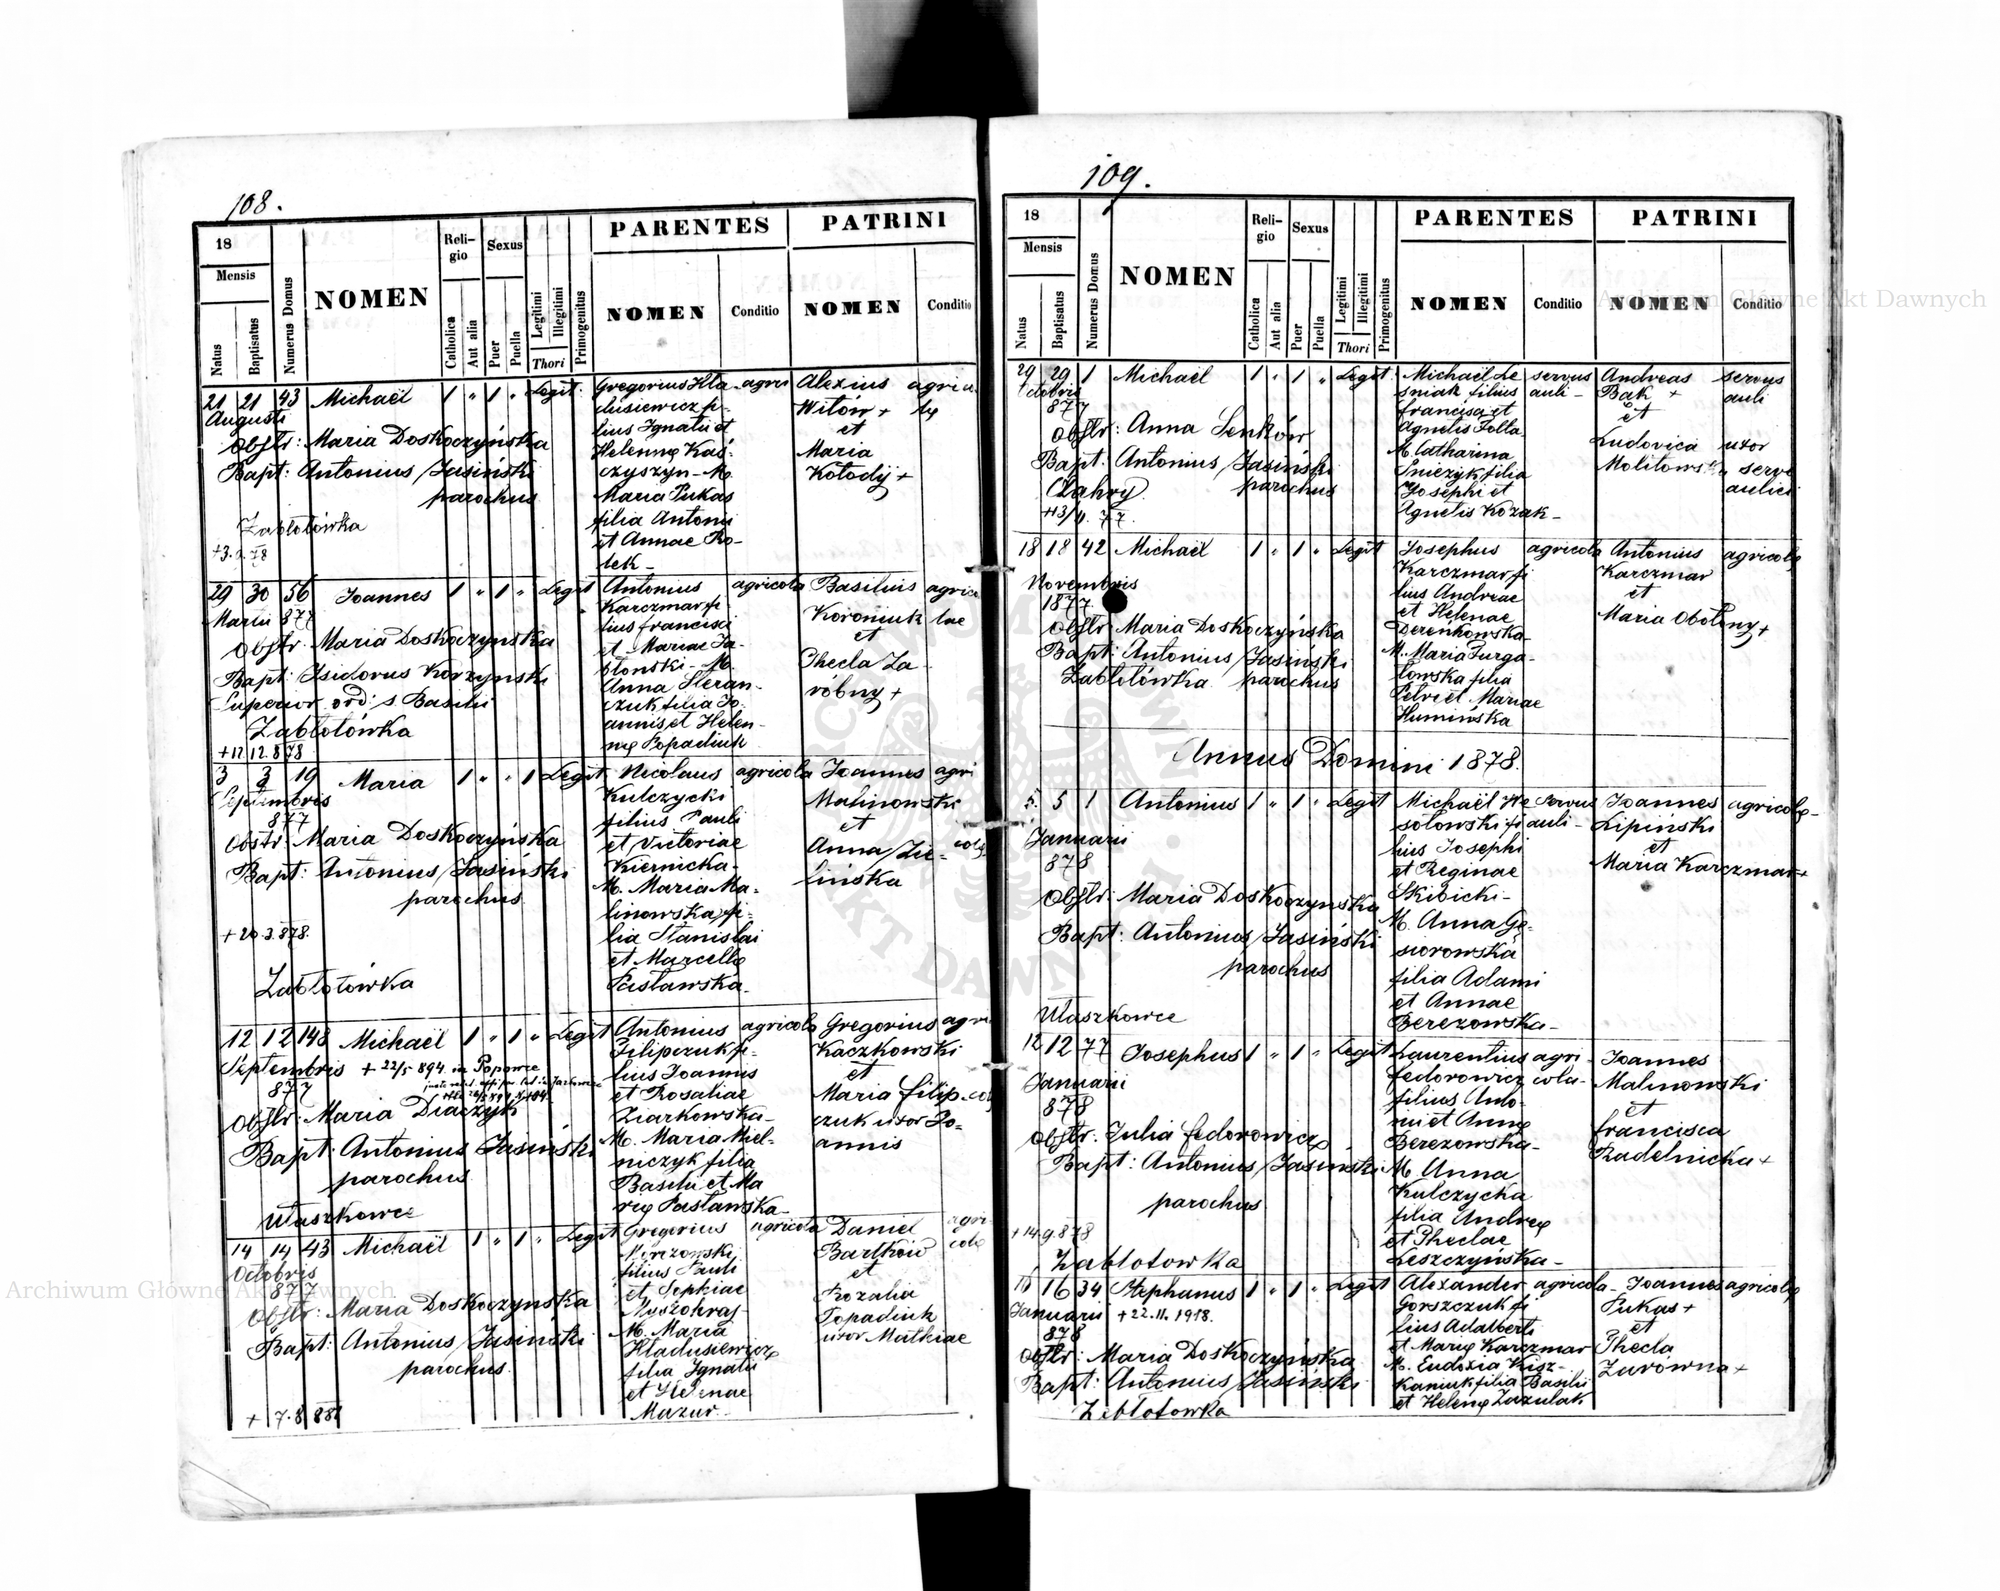 108.
18
Mensis
Natus
Baptisatus
Numerus Domus
NOMEN
Reli-
gio
Catholica
Aut alia
Sexus
Puer
Puella
Legitimi
Illegitimi
Thori
Primogenitus
PARENTES
NOMEN
Conditio
PATRINI
NOMEN
Conditio
21 21 43 Michaël 1 " 1 " Legit.
Augusti
Obstr: Maria Doskoczyńska
Bapt: Antonius Jasiński
parochus
Zabłotówka
Gregorius Kła
dusiewicz fi-
lius Ignatii et
Helenę Kaś-
czyszyn - M.
Maria Pukas
filia Antonii
et Annae Ro-
lek -
agri
Alexius
Witów +
et
Maria
Kołodij +
29 30 56 Joannes 1 " 1 " Legit
Martii 877
Obstr. Maria Doskoczyńska
Bapt: Isidorus Korzyński
Superior ord: s. Basilii
Zabłotówka
+12 12. 878
Antonius
Karczmar fi-
lius Francisci
et Mariae Ja-
błonski - M.
Anna
czuk filia Jo-
annis et Helen-
nę Popadiuk
agricola
Basilius
Koroniuk
et
Thecla Za-
róbny +
3 3 19 Maria 1 " " 1 Legit
Septembris
877
Obstr: Maria Doskoczyńska
Bapt: Antonius Jasiński
parochus
+ 20.3.878.
Zabłotówka
Nicolaus
Kulczycki
filius Pauli
et Victoriae
Kiernicka -
M. Maria Ma-
linowska fi-
lia Stanislai
et Marcellę
Pasławska -
agricola
Joannes
Malinowski
et
Anna Zie-
lińska
12 12 148 Michaël 1 " 1 " Legit
Septembris + 22/5 894. in Popowce
877
Obstr: Maria Diaczyk
Bapt: Antonius Jasiński
parochus
Ułaszkowce
Antonius
Filipczuk fi-
lius Joannis
et Rosaliae
Ziarkowska -
M. Maria Miel-
niczyk filia
Basilii et Ma
rię Pasławska -
agricola
Gregorius
Kaczkowski
et
Maria Filip-
czuk uxor Jo-
annis
14 14 43 Michaël 1 " 1 " Legit
Octobris
877
Obstr: Maria Doskoczyńska
Bapt: Antonius Jasiński
parochus
+ 7. 8 881
Gregorius
filius Pauli
M. Maria
Kładusiewicz
filia Ignatii
et Helenae
Mazur -
agricola
Daniel
Bartków
et
Rozalia
Popadiuk
uxor Mathiae
109.
18
Mensis
Natus
Baptisatus
Numerus Domus
NOMEN
Reli-
gio
Catholica
Aut alia
Sexus
Puer
Puella
Legitimi
Illegitimi
Thori
Primogenitus
PARENTES
NOMEN
Conditio
PATRINI
NOMEN
Conditio
29 29 1 Michaël 1 " 1 " Legit
Octobris
877
Obstr: Anna Senków
Bapt: Antonius Jasiński
parochus
Michaël Le
śniak filius
Francisci et
Agnetis Folta
M. Catharina
Śnieżyk filia
Josephi et
Agnetis Kozak -
servus
auli -
Andreas
Bak +
et
Ludovica
servus
auli
uxor
servi
aulici
18 18 42 Michaël 1 " 1 " Legit
Novembris
1877
Obstr: Maria Doskoczyńska
Bapt: Antonius Jasiński
Zabłotówka parochus
Josephus
Karczmar fi
lius Andreae
et Helenae
Derenkowska -
M. Maria Furga-
łowska filia
Petri et Mariae
Humińska
agricola
Antonius
Karczmar
et
Maria Obołony +
agricolę
Annus Domini 1878.
5. 5 1 Antonius 1 " 1 " Legit
Januarii
878
Obstr: Maria Doskoczyńska
Bapt: Antonius Jasiński
parochus
Ułaszkowce
Michaël We
sołowski fi
lius Josephi
et Reginae
Skibicki -
M. Anna Gę-
siorowska
filia Adami
et Annae
Berezowska -
servus
auli -
Joannes
Lipiński
et
Maria Karczmar +
agricolę -
12 12 77 Josephus 1 " 1 " Legit
Januarii
878
Obstr: Julia Fedorowicz
Bapt: Antonius Jasiński
parochus
+ 14.9.878
Zabłotowka
Laurentius
Fedorowicz
filius Anto-
nii et Annę
Berezowska -
M. Anna
Kulczycka
filia Andreę
et Theclae
Leszczyńska -
agri-
cola -
Joannes
Malinowski
et
Francisca
Radelnicka +
16 16 34 Stephanus 1 " 1 " Legit
Januarii + 22. 11. 1918.
878
Obstr: Maria Doskoczyńska
Bapt: Antonius Jasiński
Zabłotowka
Alexander
Gorszczuk fi
lius Adalberti
et Marię Karczmar
M. Eudoxia Kisz-
kaniuk filia Basilii
et Helenę Zazulak
agricola -
Joannes
Pukas +
et
Thecla
Zurówna +
agricolę
Archiwum Główne Akt Dawnych
Archiwum Główne Akt Dawnych